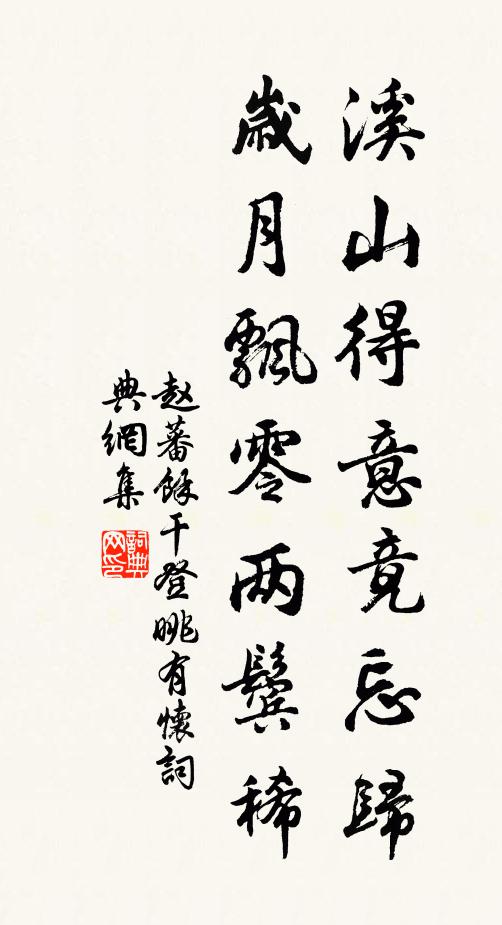 溪山得意竟忘歸
歲月飄零两鬓稀
赵蕃餘干登眺有懷詞
典網集
詞典
网印